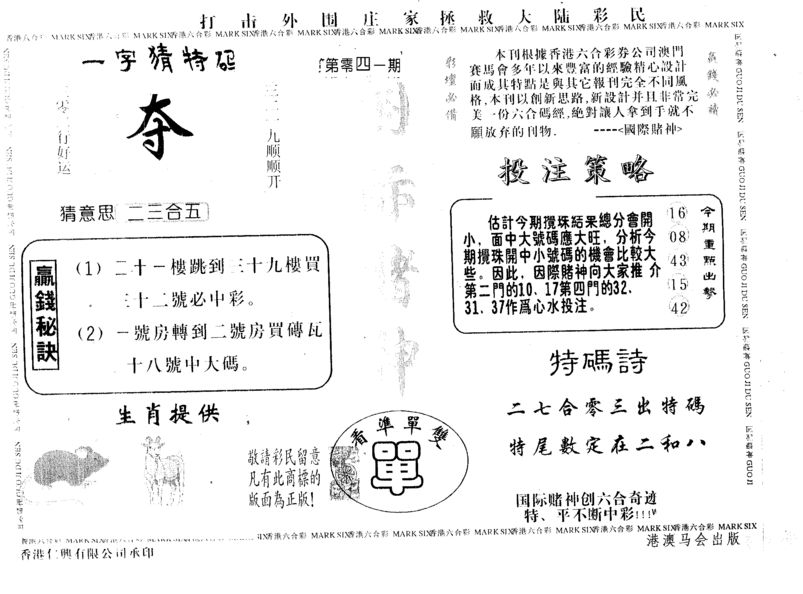 打击外围庄家拯救大陆彩民
香港六合彩 MARK SIX
一字猜特码
第零四一期
夺
行好运
九顺顺开
猜意思 二三合五
赢錢秘訣
(1) 二十一樓跳到三十九樓買
三十二號必中彩。
(2) 一號房轉到二號房買磚瓦
十八號中大碼。
生肖提供
敬請彩民留意
凡有此商標的
版面為正版!
看準單雙
單
本刊根據香港六合彩券公司澳門
賽馬會多年以來豐富的經驗精心設計
而成其特點是與其它報刊完全不同風
格,本刊以創新思路,新設計并且非常完
美一份六合碼經,絶對讓人拿到手就不
願放弃的刊物. ----<國際賭神>
彩壇必備
贏錢必讀
投注策略
估計今期攪珠結果總分會開
小，面中大號碼應大旺，分析今
期攪珠開中小號碼的機會比較大
些。因此，因際賭神向大家推 介
第二門的10、17第四門的32、
31、37作爲心水投注。
16
08
43
15
42
今期重點出擊
特碼詩
二七合零三出特碼
特尾數定在二和八
国际赌神创六合奇迹
特、平不断中彩!!!
GUO JI DU SEN
香港六合彩 MARK SIX
香港仁興有限公司承印
港澳马会出版